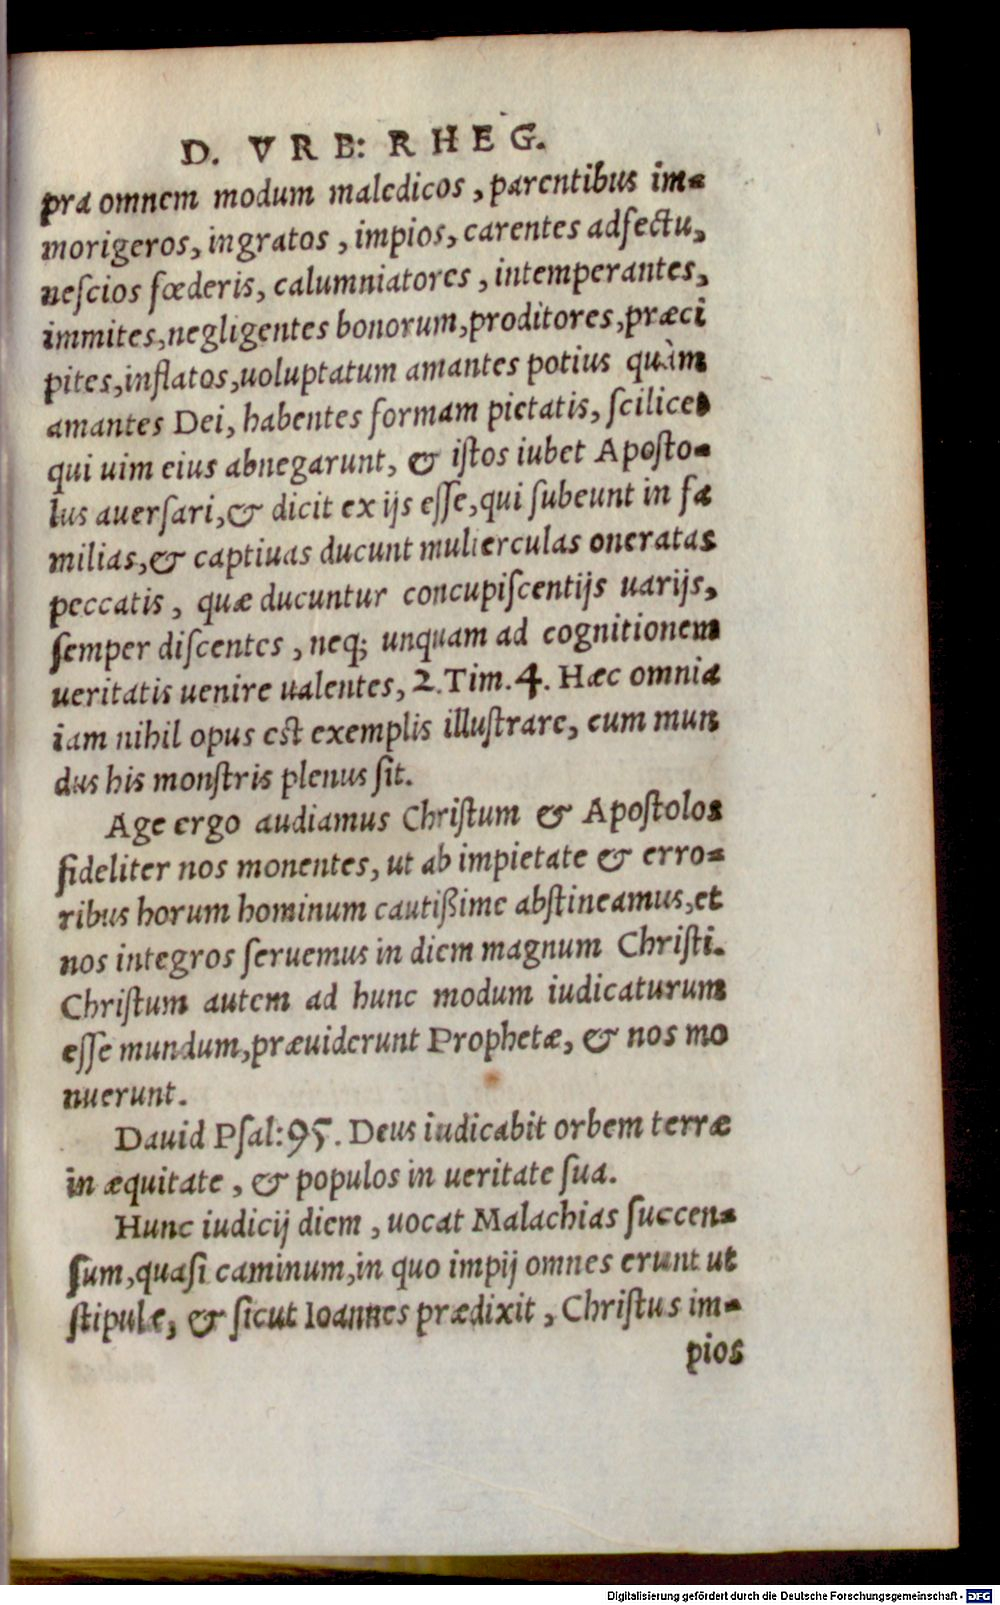 D. VRB: RHEG.
pra omnem modum maledicos, parentibus im-
morigeros, ingratos, impios, carentes adfectu,
neſcios fœderis, calumniatores, intemperantes,
immites, negligentes bonorum, proditores, præci
pites, inflatos, uoluptatum amantes potius quàm
amantes Dei, habentes formam pietatis, ſcilicet
qui uim eius abnegarunt, & iſtos iubet Apoſto-
lus auerſari, & dicit ex ijs eſſe, qui ſubeunt in fa
milias, & captiuas ducunt mulierculas oneratas
peccatis, quæ ducuntur concupiſcentijs uarijs,
ſemper diſcentes, neq; unquam ad cognitionem
ueritatis uenire ualentes, 2. Tim. 4. Hæc omnia
iam nihil opus est exemplis illuſtrare, cum mun
dus his monſtris plenus ſit.
Age ergo audiamus Chriſtum & Apoſtolos
fideliter nos monentes, ut ab impietate & erro-
ribus horum hominum cautißime abſtineamus, et
nos integros ſeruemus in diem magnum Chriſti.
Chriſtum autem ad hunc modum iudicaturum
eſſe mundum, præuiderunt Prophetæ, & nos mo
nuerunt.
Dauid Pſal: 95. Deus iudicabit orbem terræ
in æquitate, & populos in ueritate ſua.
Hunc iudicij diem, uocat Malachias ſuccen-
ſum, quaſi caminum, in quo impij omnes erunt ut
ſtipulæ, & ſicut Ioannes prædixit, Chriſtus im-
pios
Digitalisierung gefördert durch die Deutsche Forschungsgemeinschaft - DFG